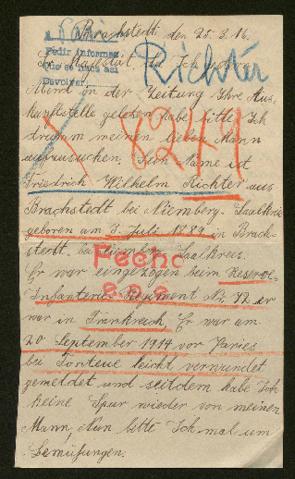 Brachstedt, den 25. 8. 16.
Pedir informes
que se hará así
Devolver
Richter
Mond in der Zeitung Ihre Aus-
kunftstelle gelesen habe bitte Ich
drum meinen lieben Mann
aufzusuchen. Sein Name ist
Friedrich Wilhelm Richter aus
Brachstedt bei Niemberg. Saalkreis
geboren am 3. Juli 1889 in Brach-
stedt. bei Niemberg Saalkreis.
Fecho
Er war eingezogen beim Reserve-
Infanterie Regiment No 72 er
war in Frankreich. Er war am
20 September 1914 vor Paries
bei Fonteue leicht verwundet
gemeldet und seitdem habe Ich
keine Spur wieder von meinen
Mann, Nun bitte Ich mal um
Bemühungen.